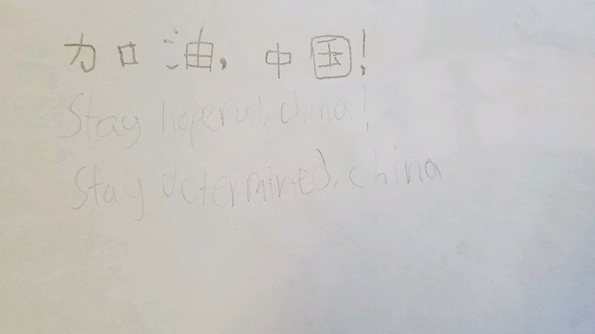 加油，中国！
Stay hopeful, china!
Stay determined, china